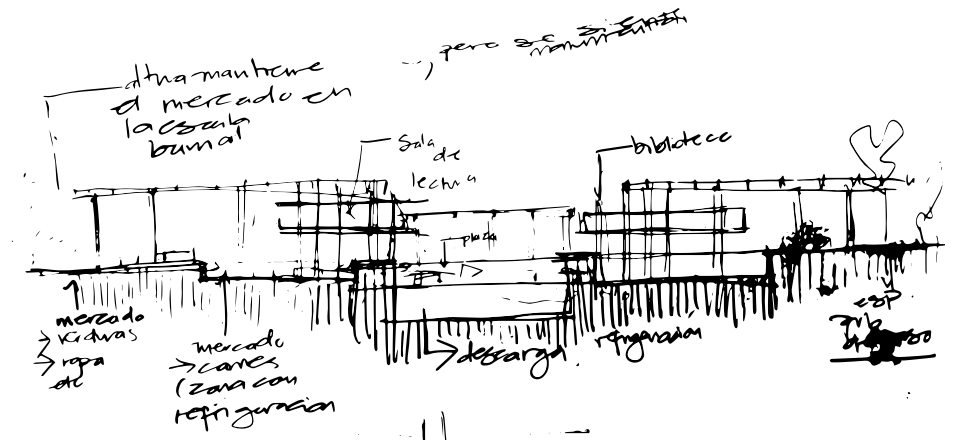 ..., pero se
altura mantiene
el mercado en
la escala
Sala
de
lectura
biblioteca
plaza
mercado
→ verduras
→ ropa
etc
mercado
→ carnes
(zona con
refrigeracion
→ descarga
refrigeración
esp